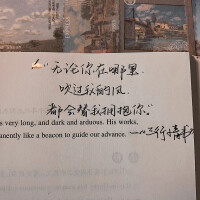 “无论你在哪里
吹过我的风
都会替我拥抱你。”
——三行情书
s very long, and dark and arduous. His works,
anently like a beacon to guide our advance.